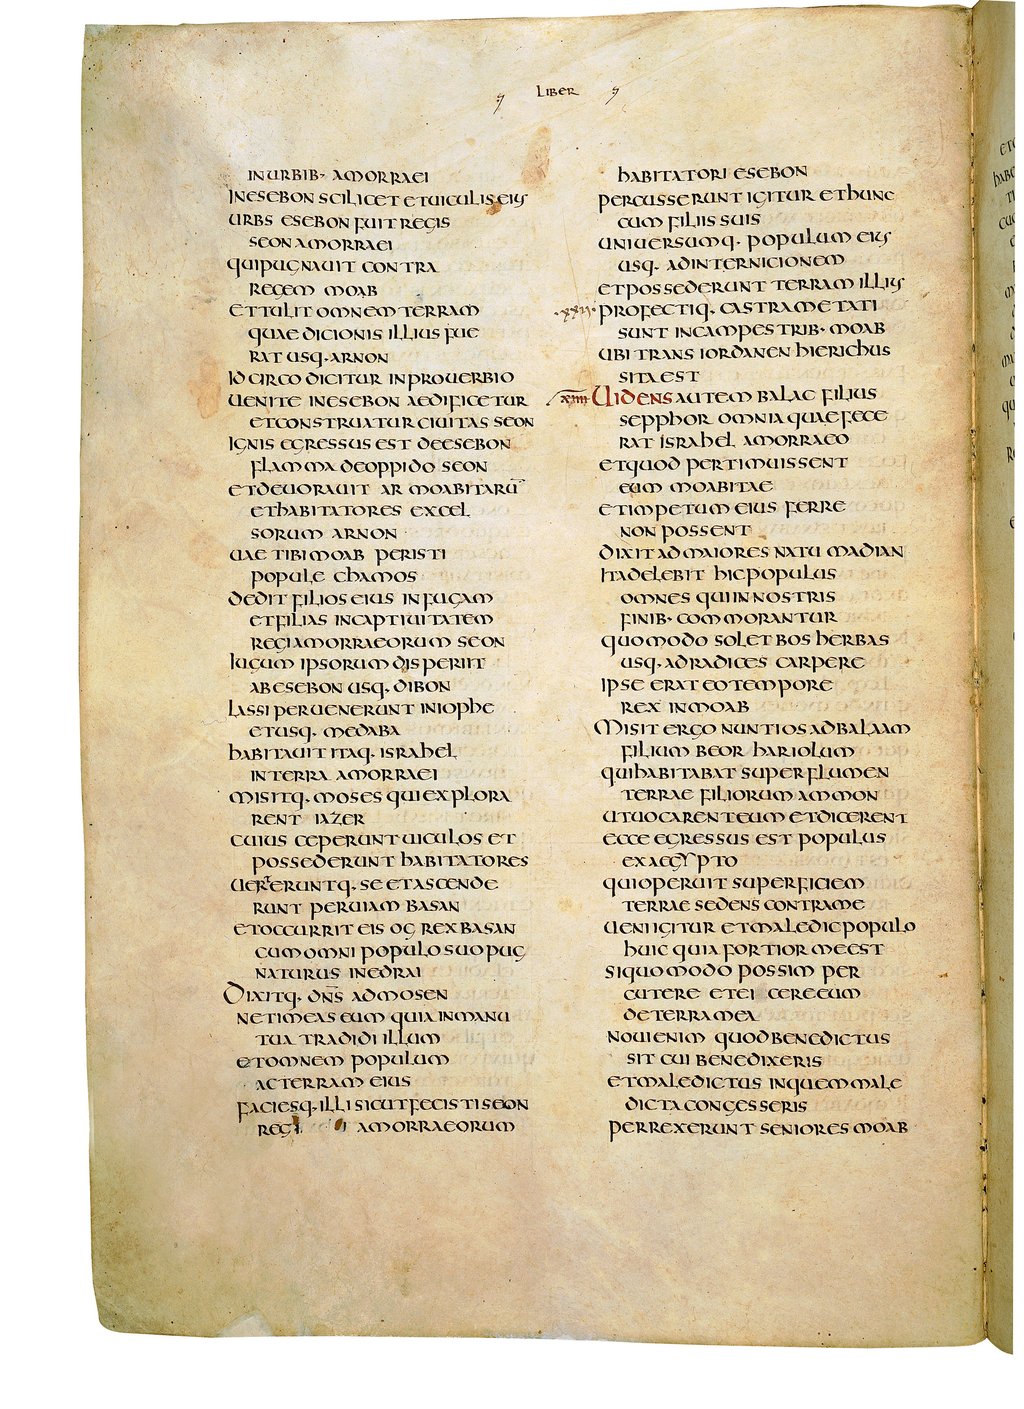 LIBER
IN URBIB· AMORRAEI
IN ESEBON SCILICET ET UICULIS EIUS
URBS ESEBON FUIT REGIS
SEON AMORRAEI
QUI PUGNAUIT CONTRA
REGEM MOAB
ET TULIT OMNEM TERRAM
QUAE DICIONIS ILLIUS FUE
RAT USQ· ARNON
IDCIRCO DICITUR IN PROUERBIO
UENITE IN ESEBON AEDIFICETUR
ET CONSTRUATUR CIUITAS SEON
IGNIS EGRESSUS EST DE ESEBON
FLAMMA DE OPPIDO SEON
ET DEUORAUIT AR MOABITARŪ
ET HABITATORES EXCEL
SORUM ARNON
UAE TIBI MOAB PERISTI
POPULE CHAMOS
DEDIT FILIOS EIUS IN FUGAM
ET FILIAS IN CAPTIUITATEM
REGI AMORRAEORUM SEON
IUGUM IPSORUM DISPERIIT
AB ESEBON USQ· DIBON
LASSI PERUENERUNT IN IOPHE
ET USQ· MEDABA
HABITAUIT ITAQ· ISRAHEL
IN TERRA AMORRAEI
MISITQ· MOSES QUI EXPLORA
RENT IAZER
CUIUS CEPERUNT UICULOS ET
POSSEDERUNT HABITATORES
UERTERUNTQ· SE ET ASCENDE
RUNT PER UIAM BASAN
ET OCCURRIT EIS OG REX BASAN
CUM OMNI POPULO SUO PUG
NATURUS IN EDRAI
DIXITQ· DN̄S AD MOSEN
NE TIMEAS EUM QUIA IN MANU
TUA TRADIDI ILLUM
ET OMNEM POPULUM
AC TERRAM EIUS
FACIESQ· ILLI SICUT FECISTI SEON
REGI AMORRAEORUM
HABITATORI ESEBON
PERCUSSERUNT IGITUR ET HUNC
CUM FILIIS SUIS
UNIUERSUMQ· POPULUM EIUS
USQ· AD INTERNICIONEM
ET POSSEDERUNT TERRAM ILLIUS
PROFECTIQ· CASTRAMETATI
SUNT IN CAMPESTRIB· MOAB
UBI TRANS IORDANEN HIERICHUS
SITA EST
UIDENS AUTEM BALAC FILIUS
SEPPHOR OMNIA QUAE FECE
RAT ISRAHEL AMORRAEO
ET QUOD PERTIMUISSENT
EUM MOABITAE
ET IMPETUM EIUS FERRE
NON POSSENT
DIXIT AD MAIORES NATU MADIAN
ITA DELEBIT HIC POPULUS
OMNES QUI IN NOSTRIS
FINIB· COMMORANTUR
QUOMODO SOLET BOS HERBAS
USQ· AD RADICES CARPERE
IPSE ERAT EO TEMPORE
REX IN MOAB
MISIT ERGO NUNTIOS AD BALAAM
FILIUM BEOR HARIOLUM
QUI HABITABAT SUPER FLUMEN
TERRAE FILIORUM AMMON
UT UOCARENT EUM ET DICERENT
ECCE EGRESSUS EST POPULUS
EX AEGYPTO
QUI OPERUIT SUPERFICIEM
TERRAE SEDENS CONTRA ME
UENI IGITUR ET MALEDIC POPULO
HUIC QUIA FORTIOR ME EST
SI QUOMODO POSSIM PER
CUTERE ET EICERE EUM
DE TERRA MEA
NOUI ENIM QUOD BENEDICTUS
SIT CUI BENEDIXERIS
ET MALEDICTUS IN QUEM MALE
DICTA CONGESSERIS
PERREXERUNT SENIORES MOAB